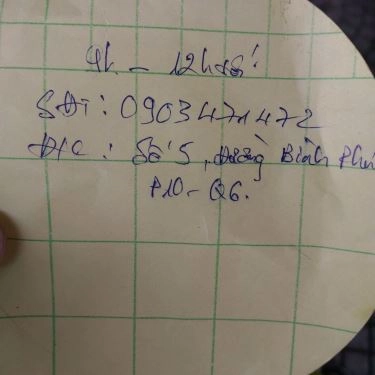 9h - 12h
SĐT: 0903471472
Đ/C: Số 5, Đường Bình Phú
P10 - Q6.